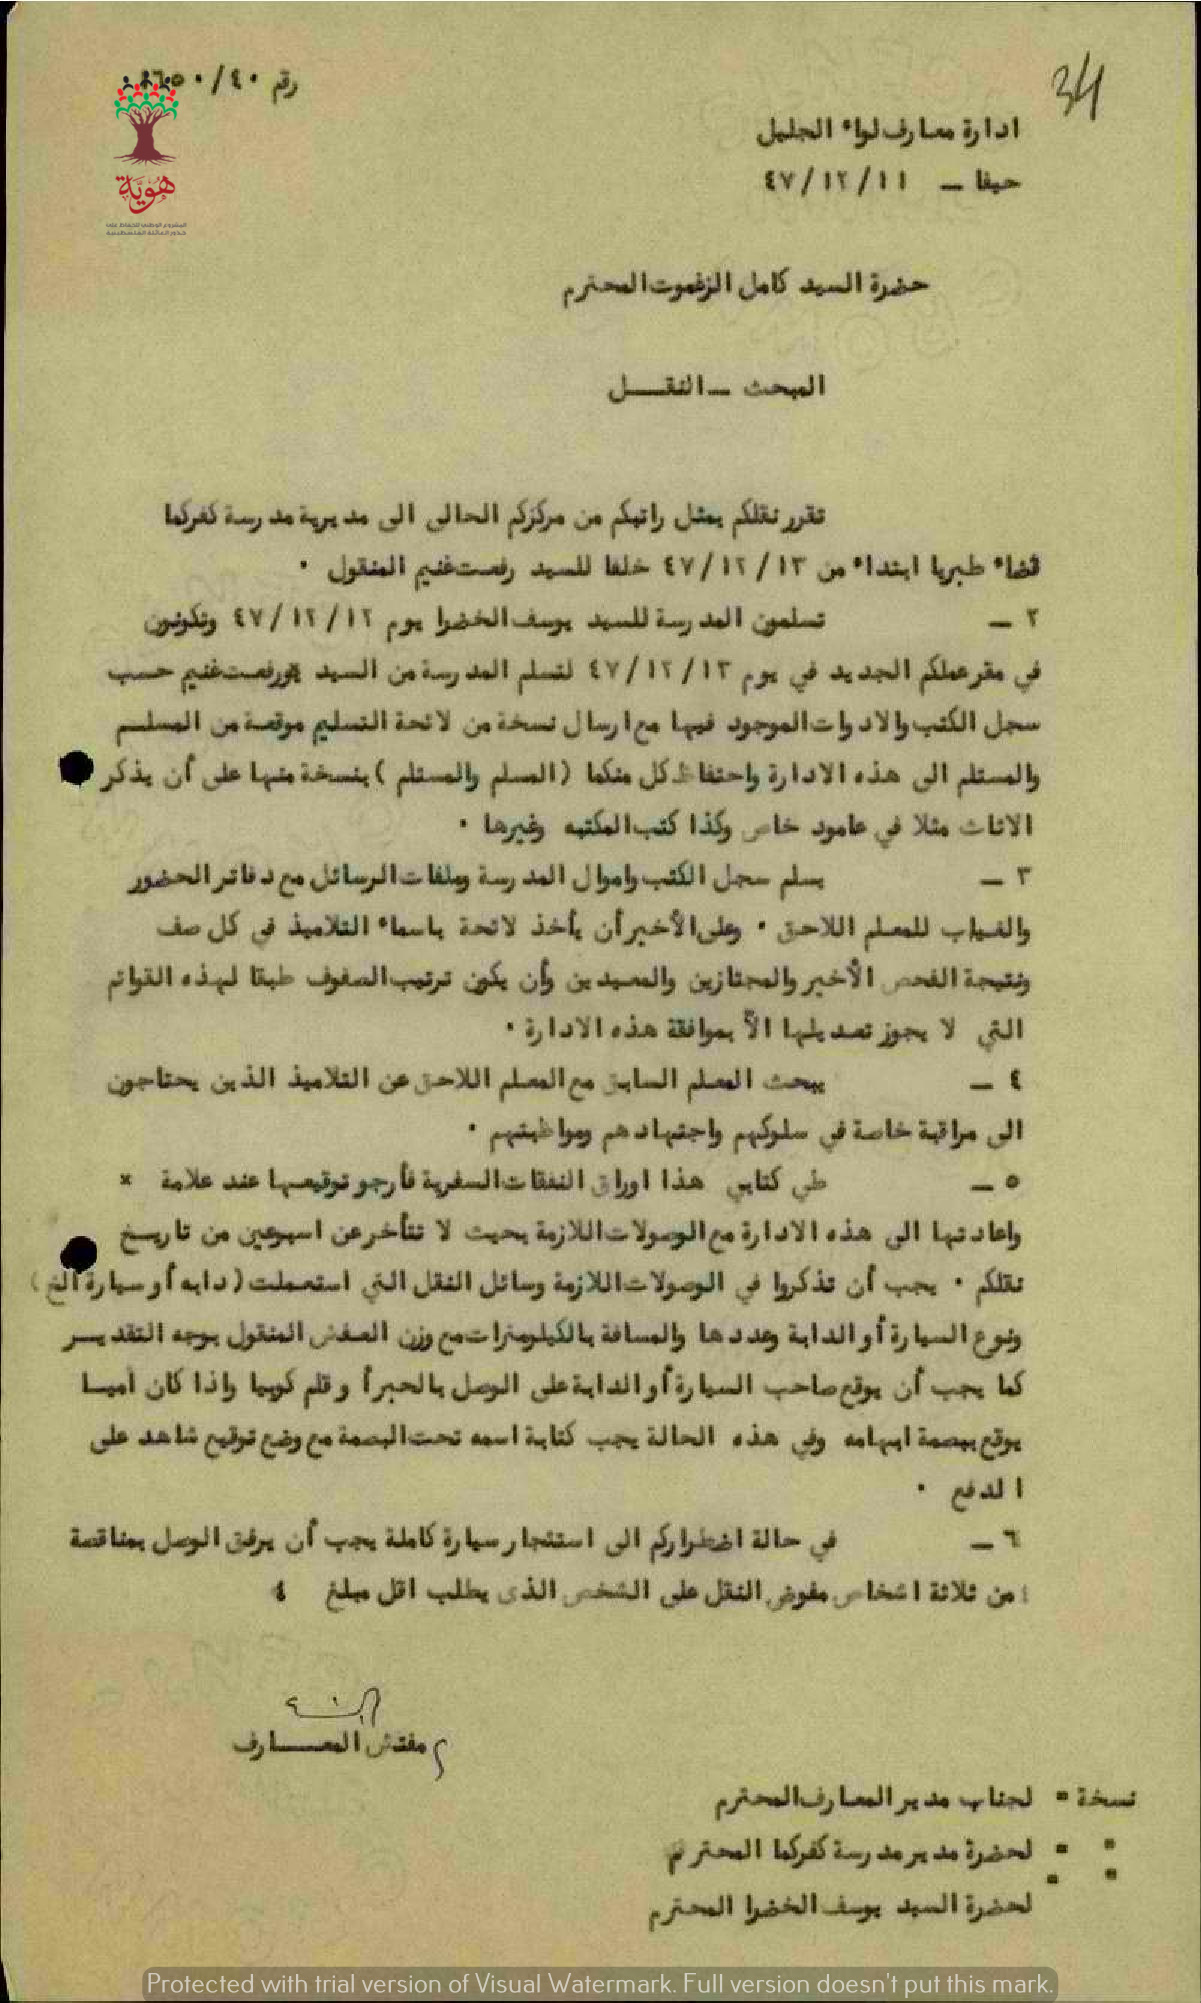 34
رقم ٤٠/٠
ادارة معارف لواء الجليل
حيفا – ٤٧/١٢/١١
هُوِيَّة
المشروع الوطني للحفاظ على
جذور العائلة الفلسطينية
حضرة السيد كامل الزغموت المحترم
المبحث – النقل
تقرر نقلكم بمثل راتبكم من مركزكم الحالي الى مديرية مدرسة كفركما
قضاء طبريا ابتداء من ٤٧/١٢/١٣ خلفا للسيد رفعت غنيم المنقول ٠
٢ – تسلمون المدرسة للسيد يوسف الخضرا يوم ٤٧/١٢/١٢ وتكونون
في مقر عملكم الجديد في يوم ٤٧/١٢/١٣ لتسلم المدرسة من السيد رفعت غنيم حسب
سجل الكتب والادوات الموجود فيها مع ارسال نسخة من لائحة التسليم موقعة من المسلم
والمستلم الى هذه الادارة واحتفاظ كل منكما (المسلم والمستلم) بنسخة منها على أن يذكر
الاثاث مثلا في عامود خاص وكذا كتب المكتبه وغيرها ٠
٣ – يسلم سجل الكتب واموال المدرسة وملفات الرسائل مع دفاتر الحضور
والغياب للمعلم اللاحق ٠ وعلى الأخير أن يأخذ لائحة باسماء التلاميذ في كل صف
ونتيجة الفحص الأخير والمجتازين والمعيدين وأن يكون ترتيب الصفوف طبقا لهذه القوائم
التي لا يجوز تعديلها الاّ بموافقة هذه الادارة ٠
٤ – يبحث المعلم السابق مع المعلم اللاحق عن التلاميذ الذين يحتاجون
الى مراقبة خاصة في سلوكهم واجتهادهم ومواظبتهم ٠
٥ – طي كتابي هذا اوراق النفقات السفرية فأرجو توقيعها عند علامة ×
واعادتها الى هذه الادارة مع الوصولات اللازمة بحيث لا تتأخر عن اسبوعين من تاريخ
نقلكم ٠ يجب أن تذكروا في الوصولات اللازمة وسائل النقل التي استعملت (دابه أو سيارة الخ)
ونوع السيارة أو الدابة وعددها والمسافة بالكيلومترات مع وزن العفش المنقول بوجه التقدير
كما يجب أن يوقع صاحب السيارة أو الدابة على الوصل بالحبر أو قلم كوبيا واذا كان أميا
يوقع ببصمة ابهامه وفي هذه الحالة يجب كتابة اسمه تحت البصمة مع وضع توقيع شاهد على
الدفع ٠
٦ – في حالة اضطراركم الى استئجار سيارة كاملة يجب أن يرفق الوصل بمناقصة
من ثلاثة اشخاص مفوض النقل على الشخص الذي يطلب اقل مبلغ ٤
مفتش المعارف
نسخة = لجناب مدير المعارف المحترم
" = لحضرة مدير مدرسة كفركما المحترم
" = لحضرة السيد يوسف الخضرا المحترم
Protected with trial version of Visual Watermark. Full version doesn't put this mark.